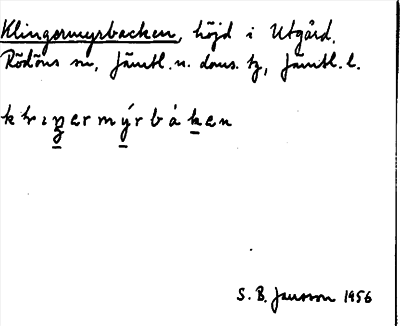 Klingermyrbacken, höjd i Utgård,
Rödöns sn, Jämtl. n. doms. tg, Jämtl. l.
ermýrbàken
S. B. Jansson 1956